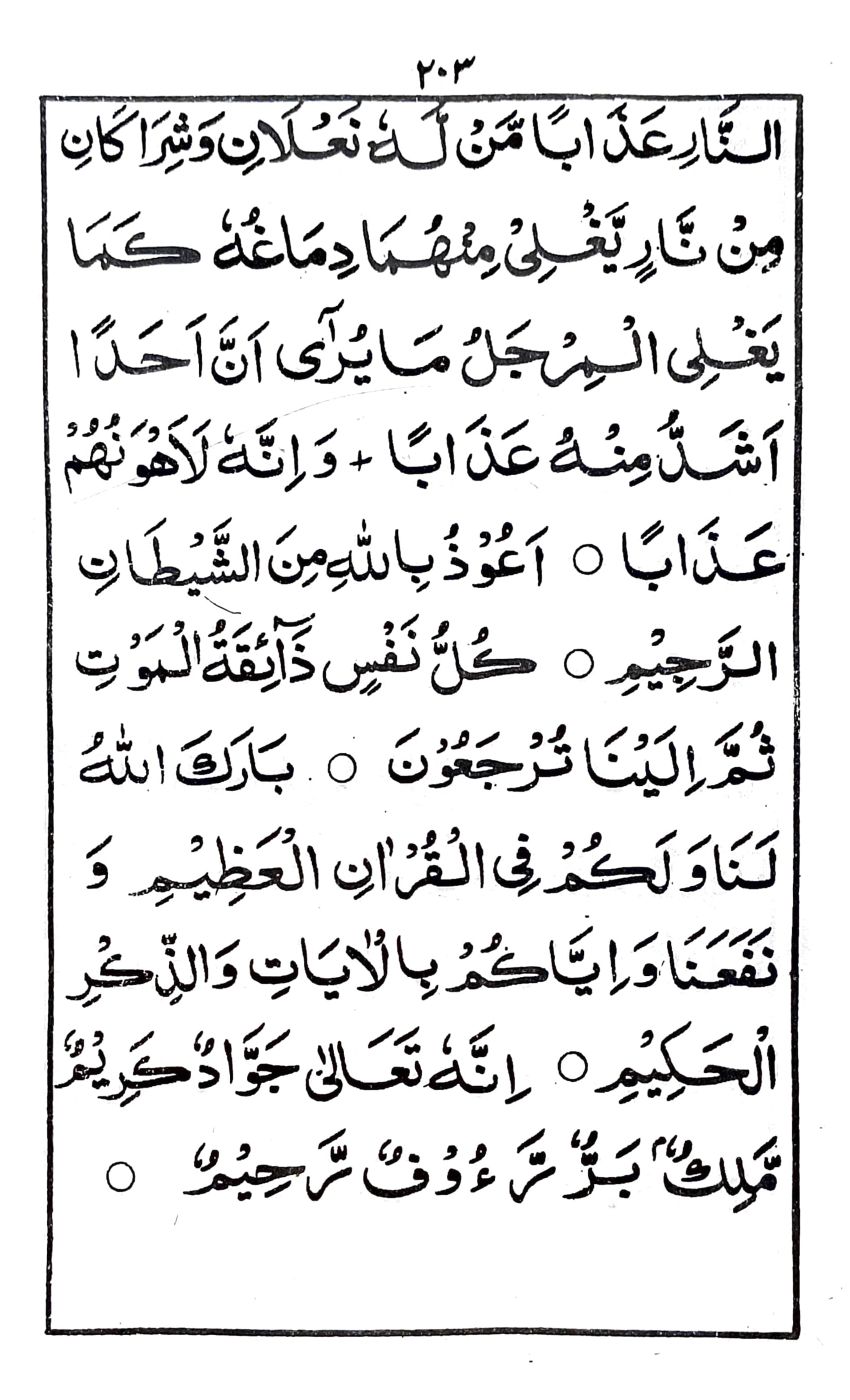 ٢٠٣
النَّارِ عَذَابًا مَّنْ لَّهٗ نَعْلَانِ وَشِرَاكَانِ
مِنْ نَّارٍ يَّغْلِيْ مِنْهُمَا دِمَاغُهٗ كَمَا
يَغْلِى الْمِرْجَلُ مَا يُرٰٓى اَنَّ اَحَدًا
اَشَدُّ مِنْهُ عَذَابًا + وَاِنَّهٗ لَاَهْوَنُهُمْ
عَذَابًا ○ اَعُوْذُ بِاللهِ مِنَ الشَّيْطَانِ
الرَّجِيْمِ ○ كُلُّ نَفْسٍ ذَآئِقَةُ الْمَوْتِ
ثُمَّ اِلَيْنَا تُرْجَعُوْنَ ○ بَارَكَ اللهُ
لَنَا وَلَكُمْ فِى الْقُرْاٰنِ الْعَظِيْمِ وَ
نَفَعَنَا وَاِيَّاكُمْ بِالْاٰيَاتِ وَالذِّكْرِ
الْحَكِيْمِ ○ اِنَّهٗ تَعَالٰى جَوَّادٌ كَرِيْمٌ
مَّلِكٌ ۢ بَرٌّ رَّءُوْفٌ رَّحِيْمٌ ○